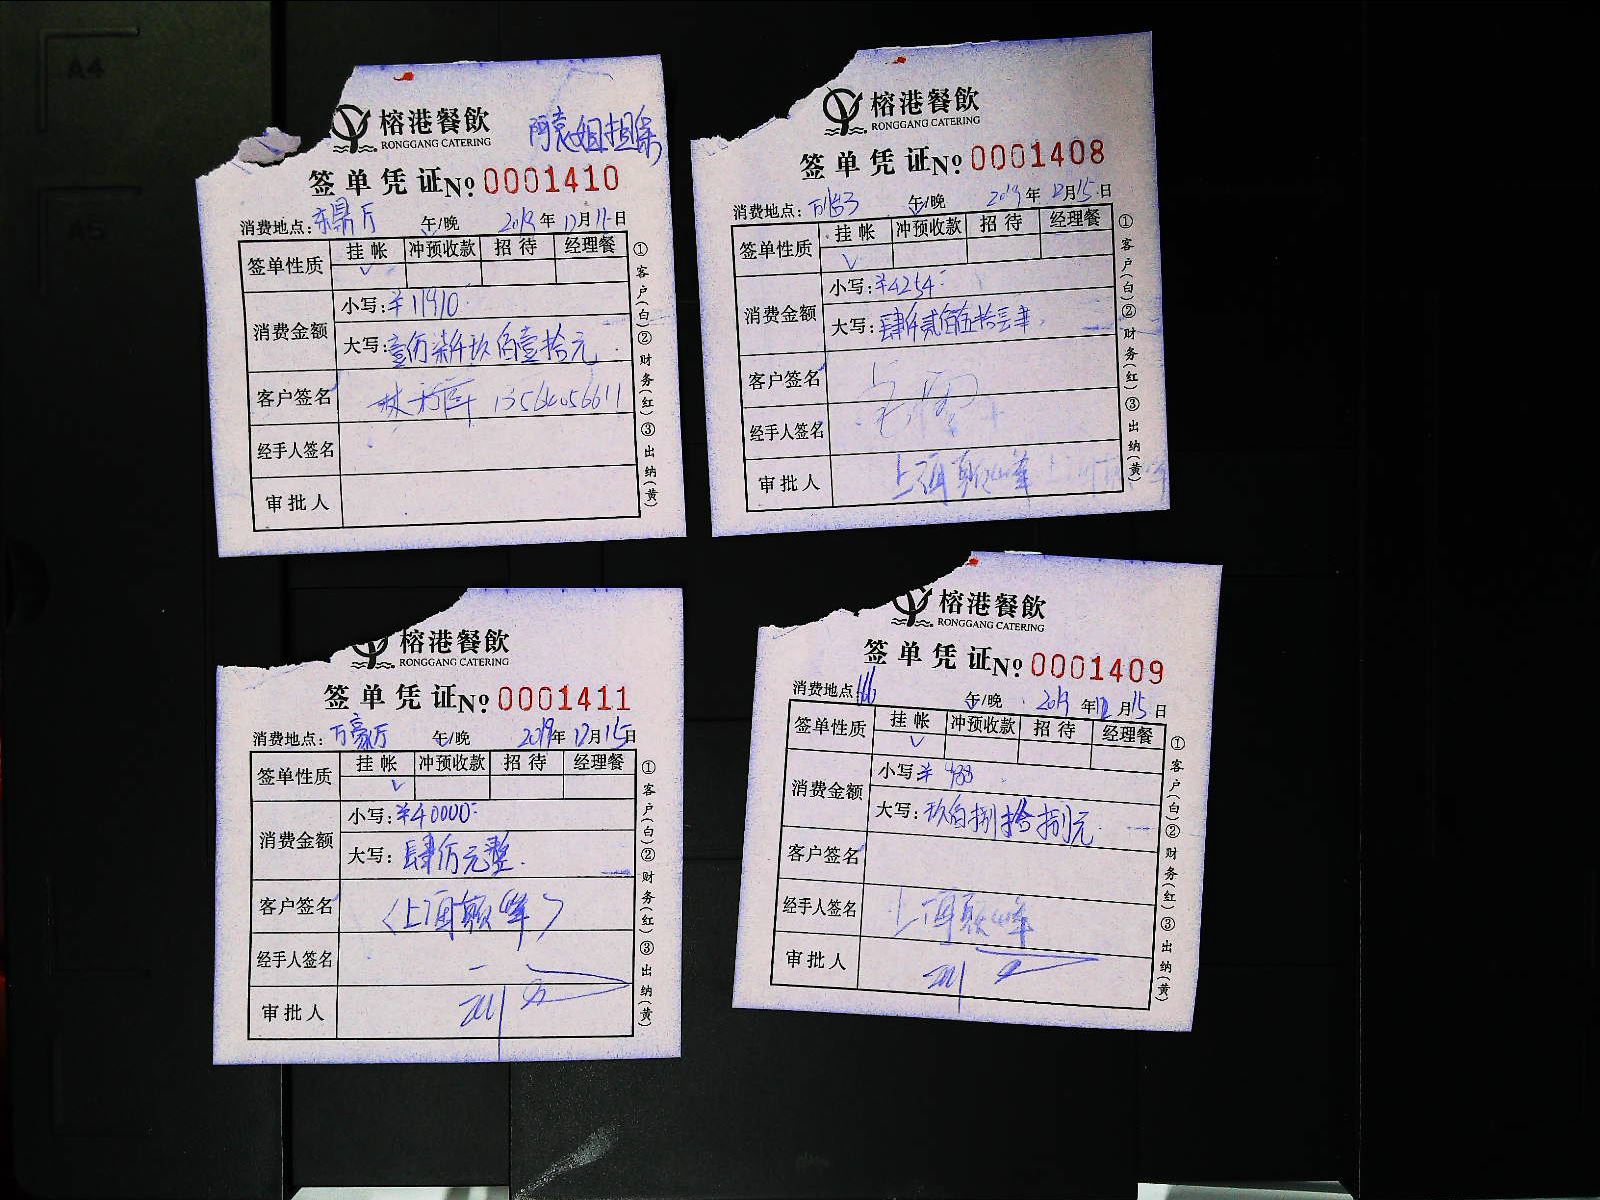 榕港餐飲
RONGGANG CATERING
阿袁姐担保
签单凭证 No 0001410
消费地点: 东鼎厅 午/晚 2019年12月15日
签单性质 挂帐 冲预收款 招待 经理餐
消费金额 小写:
大写: 壹万柒仟玖佰壹拾元
客户签名 13564056611
经手人签名
审批人
①客户(白)②财务(红)③出纳(黄)
榕港餐飲
RONGGANG CATERING
签单凭证 No 0001408
消费地点: 午/晚 2019年12月15日
签单性质 挂帐 冲预收款 招待 经理餐
消费金额 小写: ¥4254-
大写: 肆仟贰佰伍拾肆
客户签名
经手人签名
审批人 上海颠峰
①客户(白)②财务(红)③出纳(黄)
榕港餐飲
RONGGANG CATERING
签单凭证 No 0001411
消费地点: 万豪厅 午/晚 2019年12月15日
签单性质 挂帐 冲预收款 招待 经理餐
消费金额 小写: ¥40000-
大写: 肆万元整.
客户签名 〈上海颠峰〉
经手人签名
审批人
①客户(白)②财务(红)③出纳(黄)
榕港餐飲
RONGGANG CATERING
签单凭证 No 0001409
消费地点: 午/晚 2019年12月15日
签单性质 挂帐 冲预收款 招待 经理餐
消费金额 小写: ¥988
大写: 玖佰捌拾捌元
客户签名
经手人签名 上海颠峰
审批人
①客户(白)②财务(红)③出纳(黄)
A4
A5